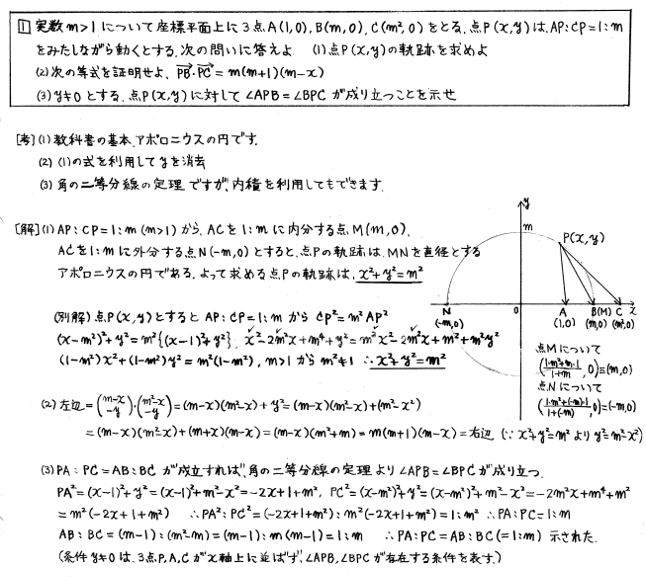 1 実数m>1について座標平面上に3点A(1,0),B(m,0),C(m²,0)をとる.点P(x,y)は,AP:CP=1:m
をみたしながら動くとする.次の問いに答えよ (1)点P(x,y)の軌跡を求めよ
(2)次の等式を証明せよ, PB・PC = m(m+1)(m-x)
(3) y≠0とする.点P(x,y)に対して∠APB=∠BPCが成り立つことを示せ
[考](1)教科書の基本,アポロニウスの円です.
(2) (1)の式を利用してyを消去
(3) 角の二等分線の定理ですが,内積を利用してもできます.
[解](1) AP:CP=1:m (m>1)から, ACを1:mに内分する点M(m,0),
ACを1:mに外分する点N(-m,0)とすると,点Pの軌跡は,MNを直径とする
アポロニウスの円である.よって求める点Pの軌跡は, x²+y²=m²
(別解)点P(x,y)とするとAP:CP=1:mから CP²=m²AP²
(x-m²)²+y²=m²{(x-1)²+y²}, x²-2m²x+m⁴+y²=m²x²-2m²x+m²+m²y²
(1-m²)x²+(1-m²)y²=m²(1-m²), m>1からm²≠1 ∴x²+y²=m²
y
m
P(x,y)
N
(-m,0)
0
A
(1,0)
B(M)
(m,0)
C
(m²,0)
x
点Mについて
(1·m²+m·1/1+m, 0)=(m,0)
点Nについて
(1·m²+(-m)·1/1+(-m), 0)=(-m,0)
(2) 左辺=(m-x/-y)・(m²-x/-y)=(m-x)(m²-x)+y²=(m-x)(m²-x)+(m²-x²)
=(m-x)(m²-x)+(m+x)(m-x)=(m-x)(m²+m)=m(m+1)(m-x)=右辺 (∵x²+y²=m²よりy²=m²-x²)
(3) PA:PC=AB:BCが成立すれば,角の二等分線の定理より∠APB=∠BPCが成り立つ.
PA²=(x-1)²+y²=(x-1)²+m²-x²=-2x+1+m², PC²=(x-m²)²+y²=(x-m²)²+m²-x²=-2m²x+m⁴+m²
=m²(-2x+1+m²) ∴PA²:PC²=(-2x+1+m²):m²(-2x+1+m²)=1:m² ∴PA:PC=1:m
AB:BC=(m-1):(m²-m)=(m-1):m(m-1)=1:m ∴PA:PC=AB:BC(=1:m) 示された.
(条件y≠0は,3点P,A,Cがx軸上に並ばず,∠APB,∠BPCが存在する条件を表す.)